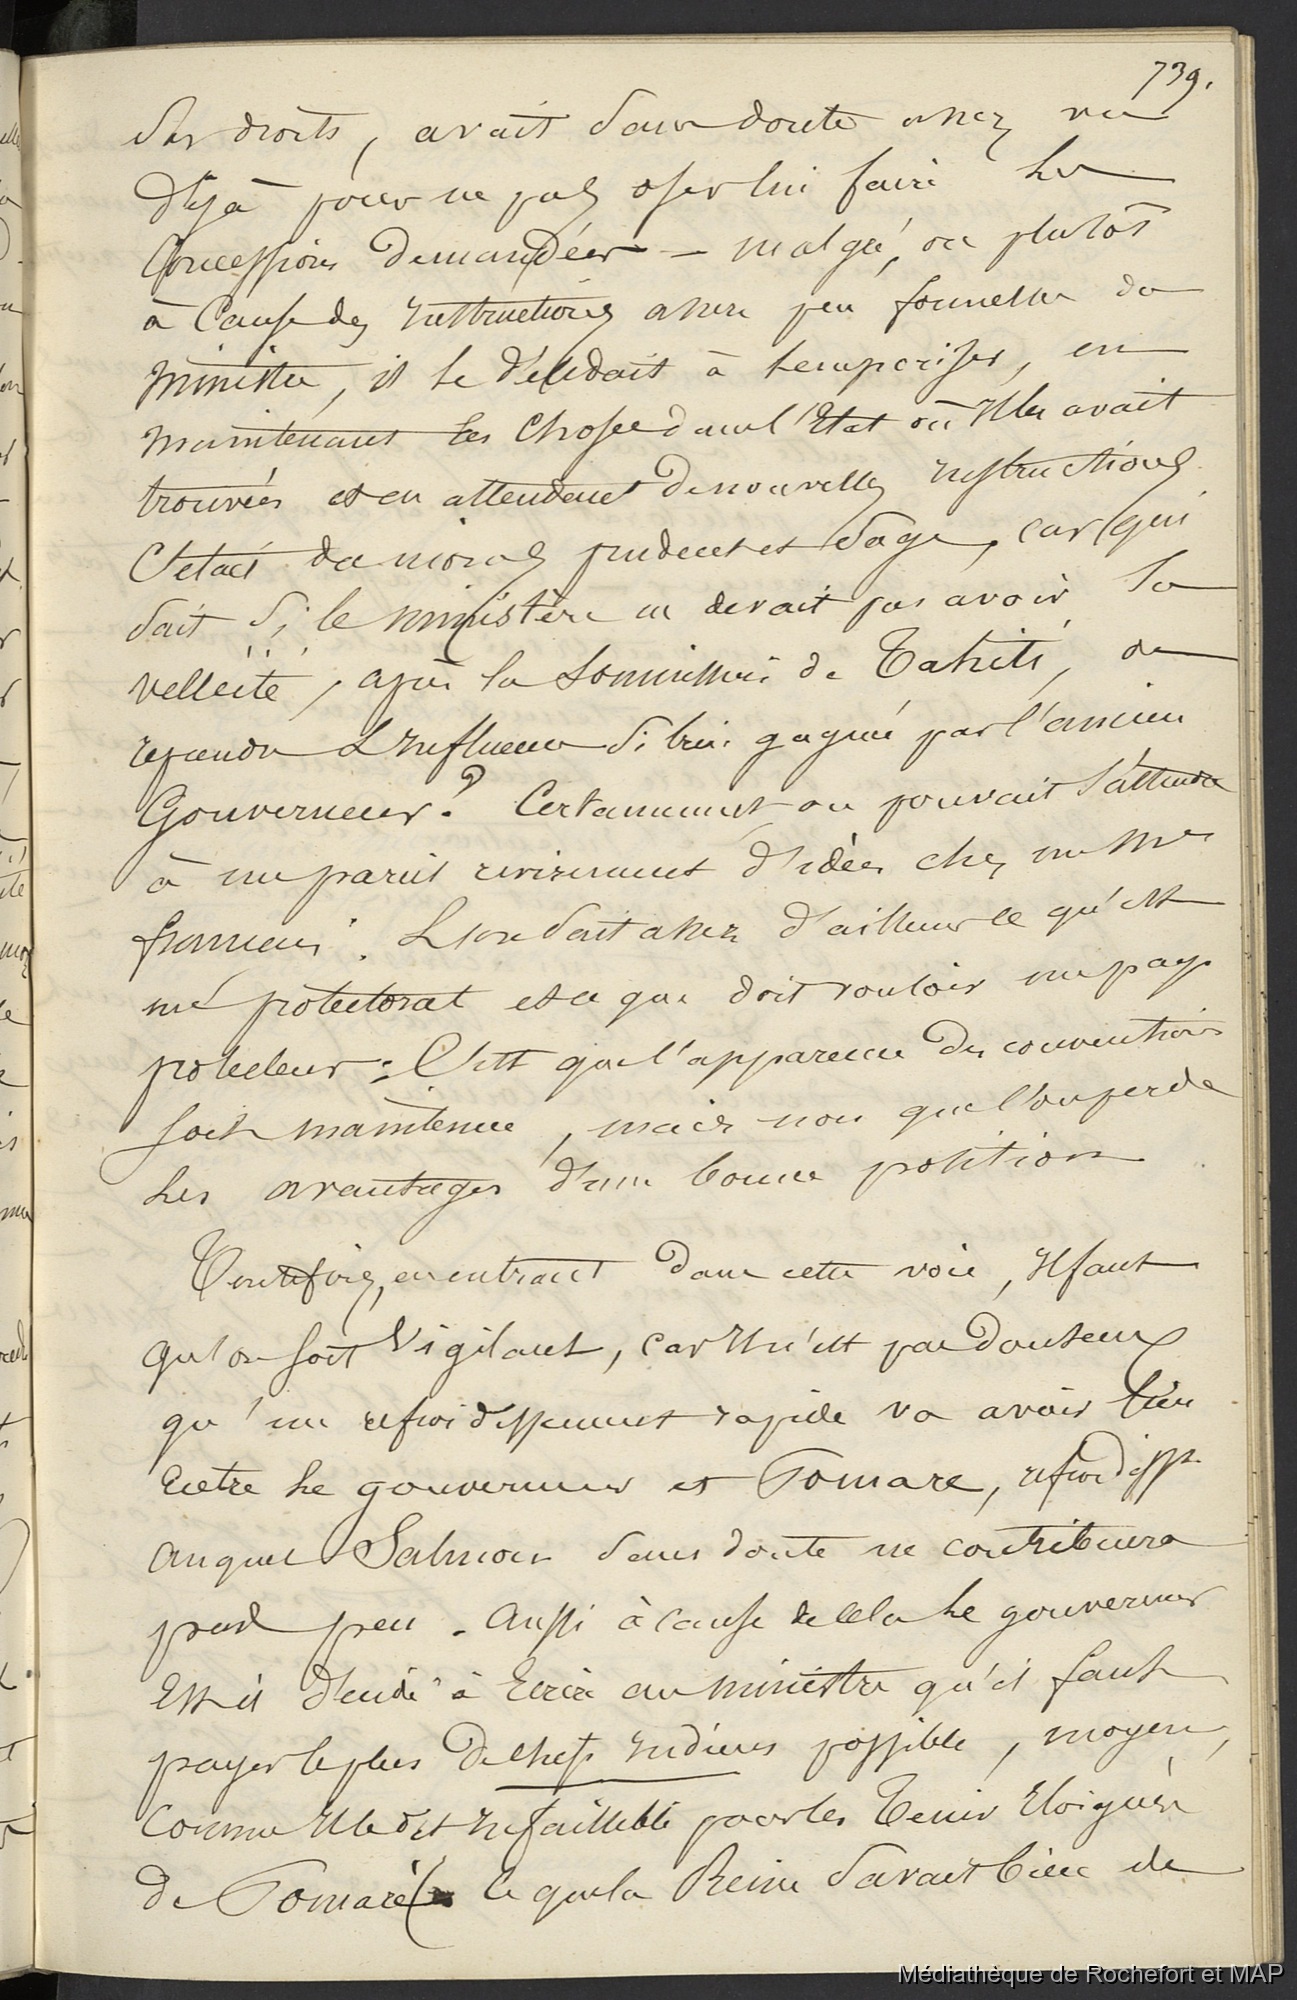 739.
ses droits, avait sans doute assez vu
déjà pour ne pas oser lui faire les
Concessions demandées — malgré, ou plutôt
à Cause des Instructions assez peu formelles du
Ministre, il se décidait à temporiser, en
maintenant les Choses dans l'Etat où Il les avait
trouvées et en attendant de nouvelles instructions
C'etait du moins prudent et Sage, car qui
sait si le ministère ne devait pas avoir la
velléité, après la soumission de Tahiti, de
reprendre L'Influence si bien gagnée par l'ancien
Gouverneur? Certainement on pouvait s'attendre
à un pareil revirement d'idées chez un Mre
français. L'on sait assez d'ailleurs ce qu'est
un protectorat et ce que doit vouloir un pays
protecteur: C'est que l'apparence des conventions
soit maintenue, mais non que l'on perde
les avantages d'une bonne position
Toutefois, en entrant dans cette voie, Il faut
qu'on soit Vigilant, car Il n'est pas douteux
qu'un refroidissement rapide va avoir lieu
Entre le gouverneur et Pomare, refroidisst
auquel Salmon sans doute ne contribuera
pas peu. Aussi à cause de cela le gouverneur
Est il décidé à Ecrire au ministre qu'il faut
payer le plus de chefs Indiens possible, moyen,
Comme Il le dit Infaillible pour les Tenir Eloignés
de Pomaré (ce que la Reine savait bien de
Médiathèque de Rochefort et MAP